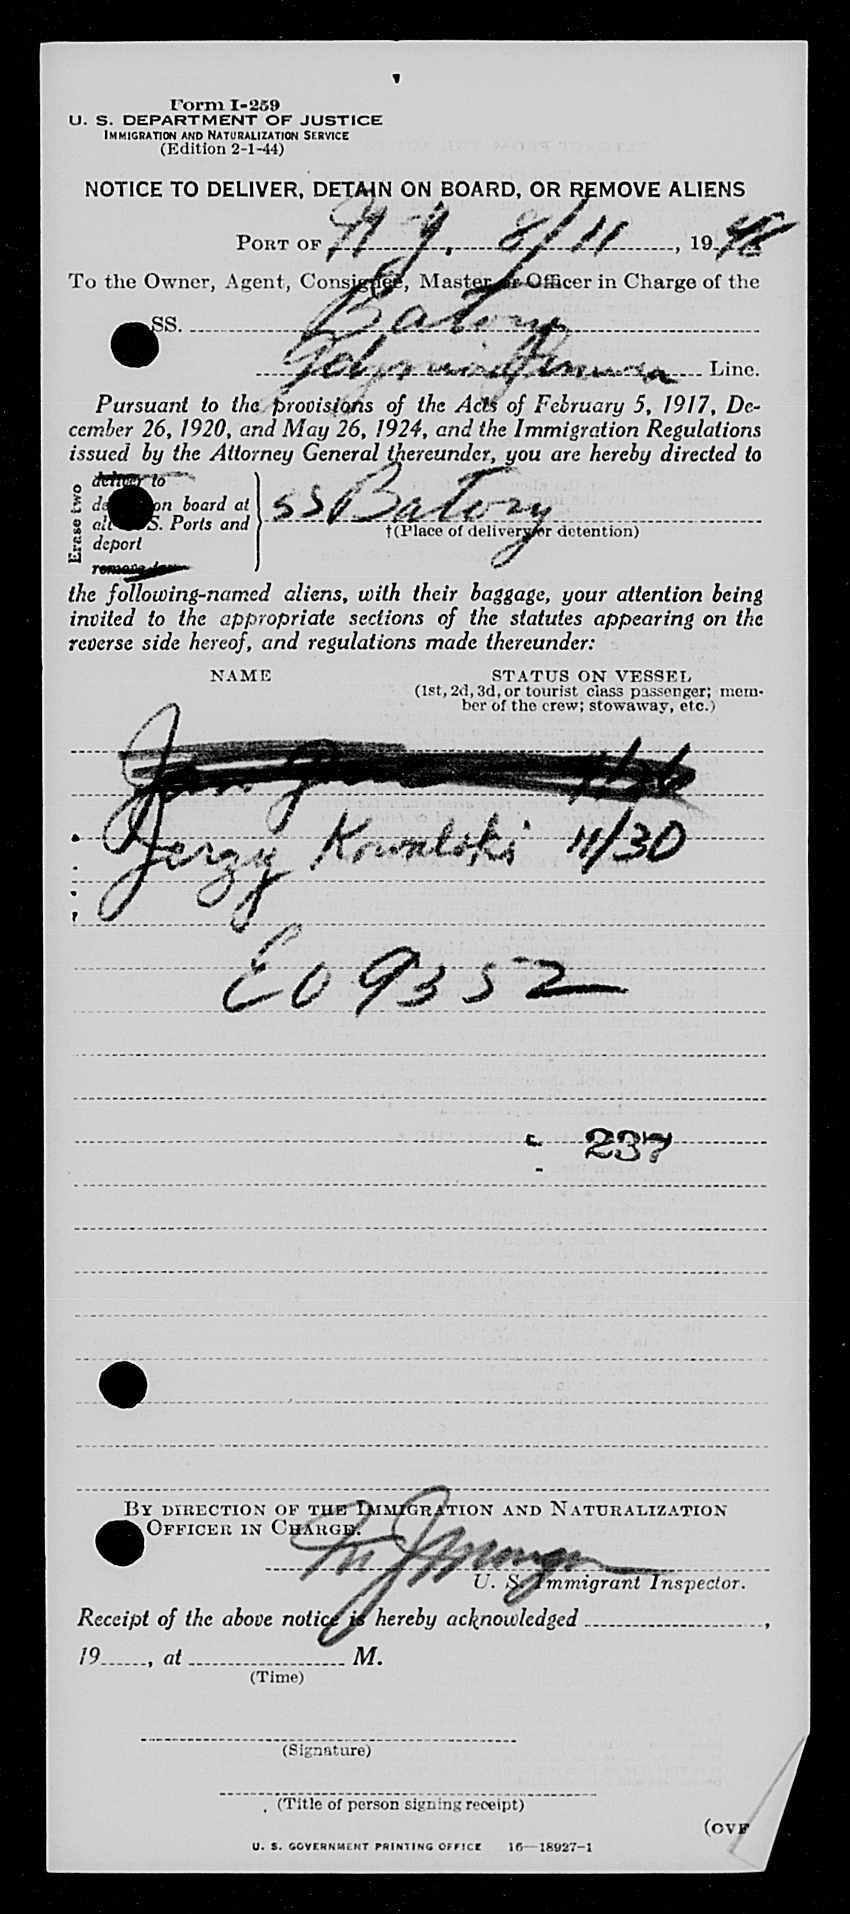 Form I-259
U. S. DEPARTMENT OF JUSTICE
IMMIGRATION AND NATURALIZATION SERVICE
(Edition 2-1-44)
NOTICE TO DELIVER, DETAIN ON BOARD, OR REMOVE ALIENS
PORT OF N Y. 8/11, 1948
To the Owner, Agent, Consignee, Master or Officer in Charge of the
SS. Batory
Gdynia America Line.
Pursuant to the provisions of the Acts of February 5, 1917, De-
cember 26, 1920, and May 26, 1924, and the Immigration Regulations
issued by the Attorney General thereunder, you are hereby directed to
Erase two
deliver to
on board at
all S. Ports and
deport
remove
SS Batory
†(Place of delivery or detention)
the following-named aliens, with their baggage, your attention being
invited to the appropriate sections of the statutes appearing on the
reverse side hereof, and regulations made thereunder:
NAME STATUS ON VESSEL
(1st, 2d, 3d, or tourist class passenger; mem-
ber of the crew; stowaway, etc.)
Jerzy Kowalski 11/30
E09352
237
BY DIRECTION OF THE IMMIGRATION AND NATURALIZATION
OFFICER IN CHARGE.
U. S. Immigrant Inspector.
Receipt of the above notice is hereby acknowledged ,
19 , at M.
(Time)
(Signature)
(Title of person signing receipt)
(OVE
U. S. GOVERNMENT PRINTING OFFICE 16—18927-1